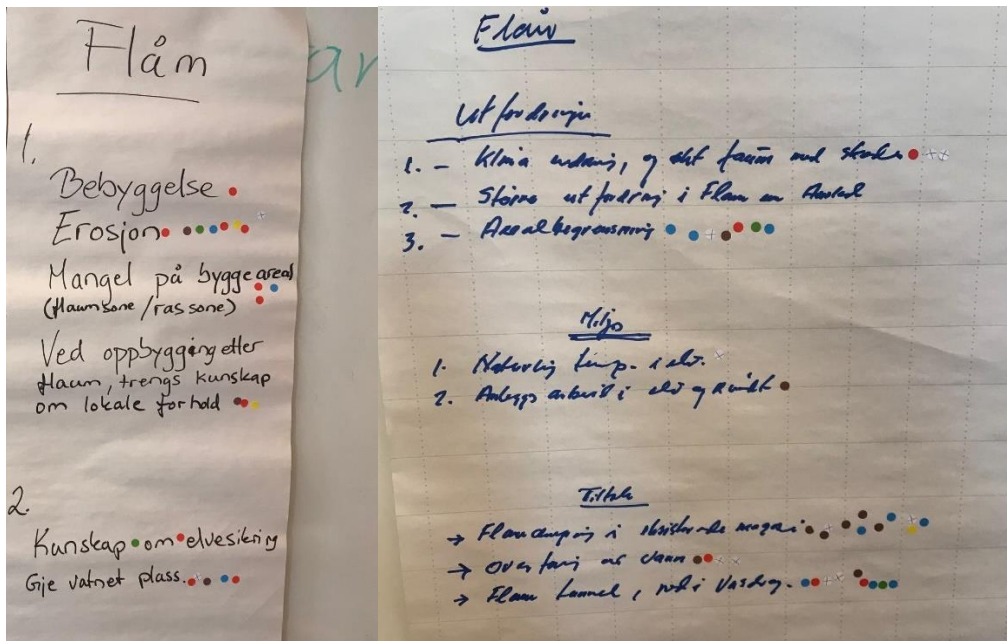 Flåm
1.
Bebyggelse
Erosjon
Mangel på bygge areal
(flaumsone/rassone)
Ved oppbygging etter
flaum, trengs kunskap
om lokale forhold
2.
Kunskap om elvesikring
Gje vatnet plass.
Flåm
Utfordringer
1. - Klima endring, og økt flaum med skader
2. - Større utfordring i Flåm en Aurland
3. - Arealbegrensning
Miljø
1. Naturlig temp. i elv.
2. Anleggs arbeid i elv og
Tiltak
→ Flaumdemping i eksisterende magasi
→ Overføring av vann
→ Flaum tunnel, ned i Vassdrag.